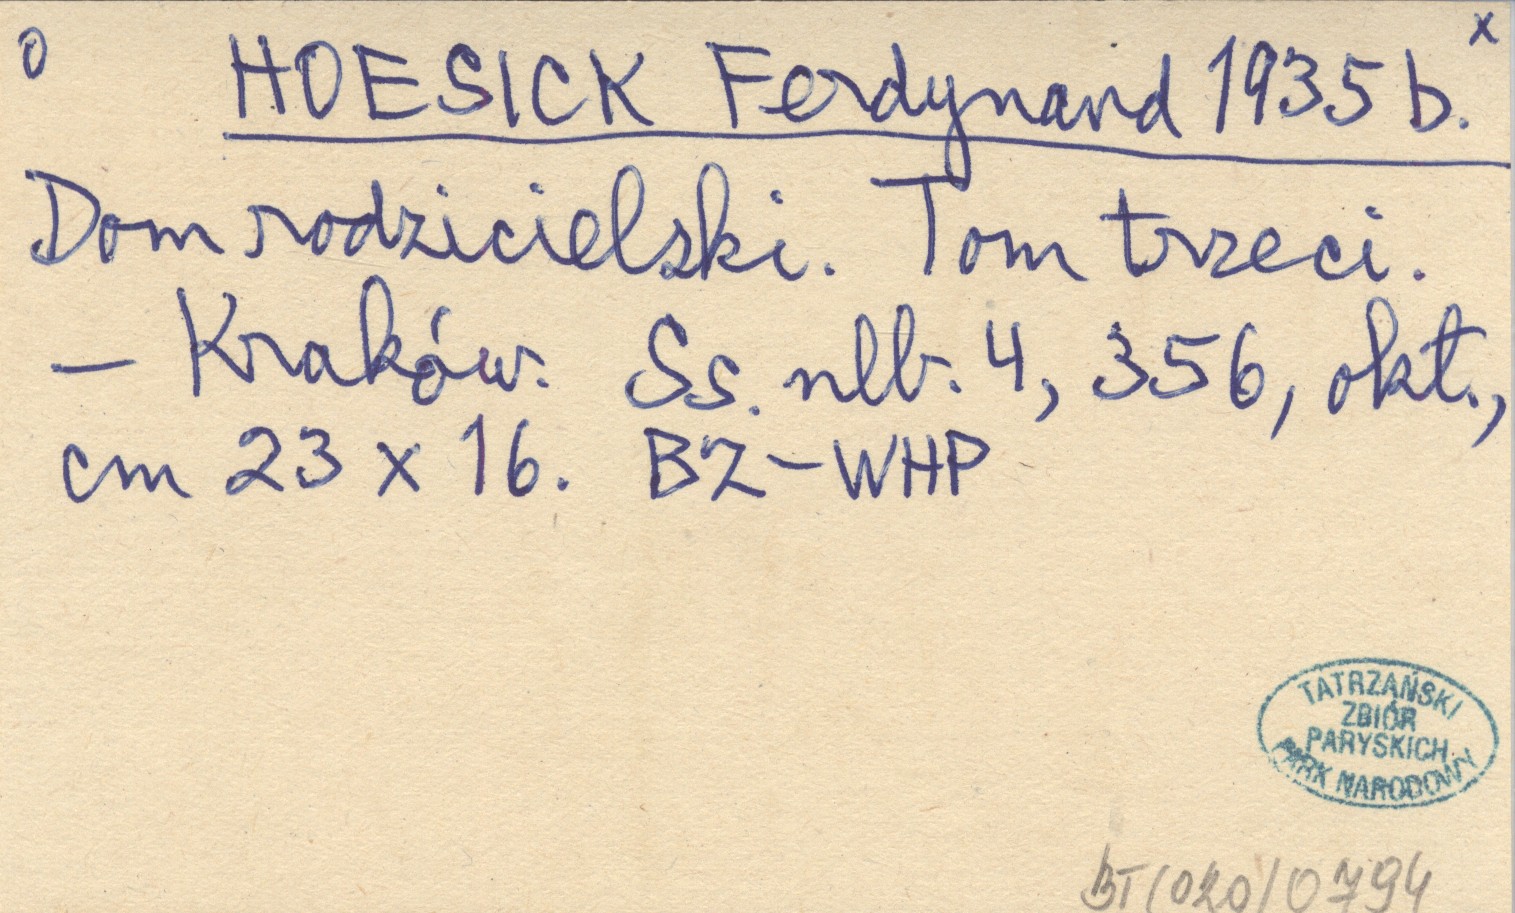 0 HOESICK Ferdynand 1935 b. x
Dom rodzicielski. Tom trzeci.
– Kraków. Ss. nlb. 4, 356, okt.,
cm 23 x 16. BZ-WHP
TATRZAŃSKI
ZBIÓR
PARYSKICH
PARK NARODOWY
BT(020)0794